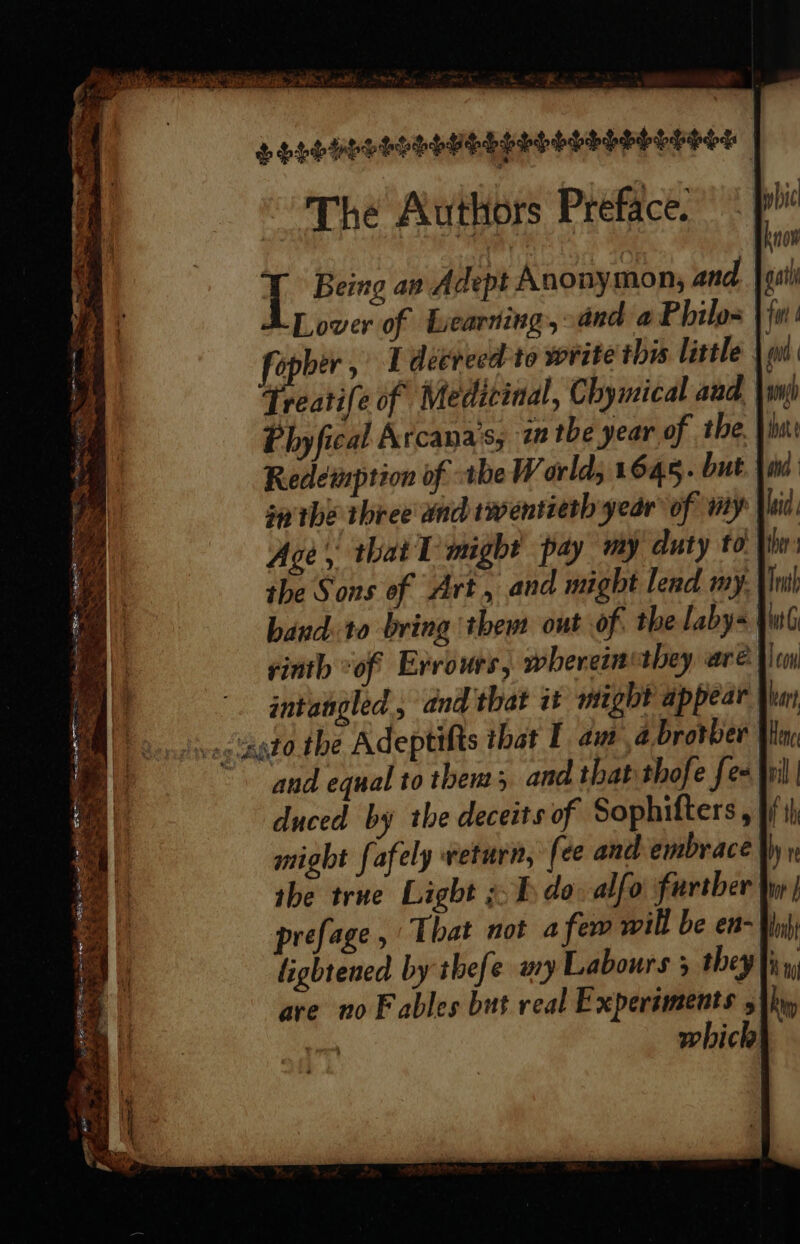 The Authors Preface.
I Being an Adept Anonymon, and
Lover of Learning, and a Philo-
ſopher, I decreed to write this little
Treatiſe of Medicinal, Chymical and
Phyſical Arcana's, in the year of the
Redemption of the World, 1645. but
in the three and twentieth year of my
Age, that I might pay my duty to
the Sons of Art, and might lend my
hand to bring them out of the laby-
rinth of Errours, wherein they are
intangled, and that it might appear
to the Adeptiſts that I am a brother
and equal to them; and that thoſe ſe-
duced by the deceits of Sophiſters,
might ſafely return, ſee and embrace
the true Light; I do alſo further
preſage, That not a few will be en-
lightened by theſe my Labours; they
are no Fables but real Experiments,
which